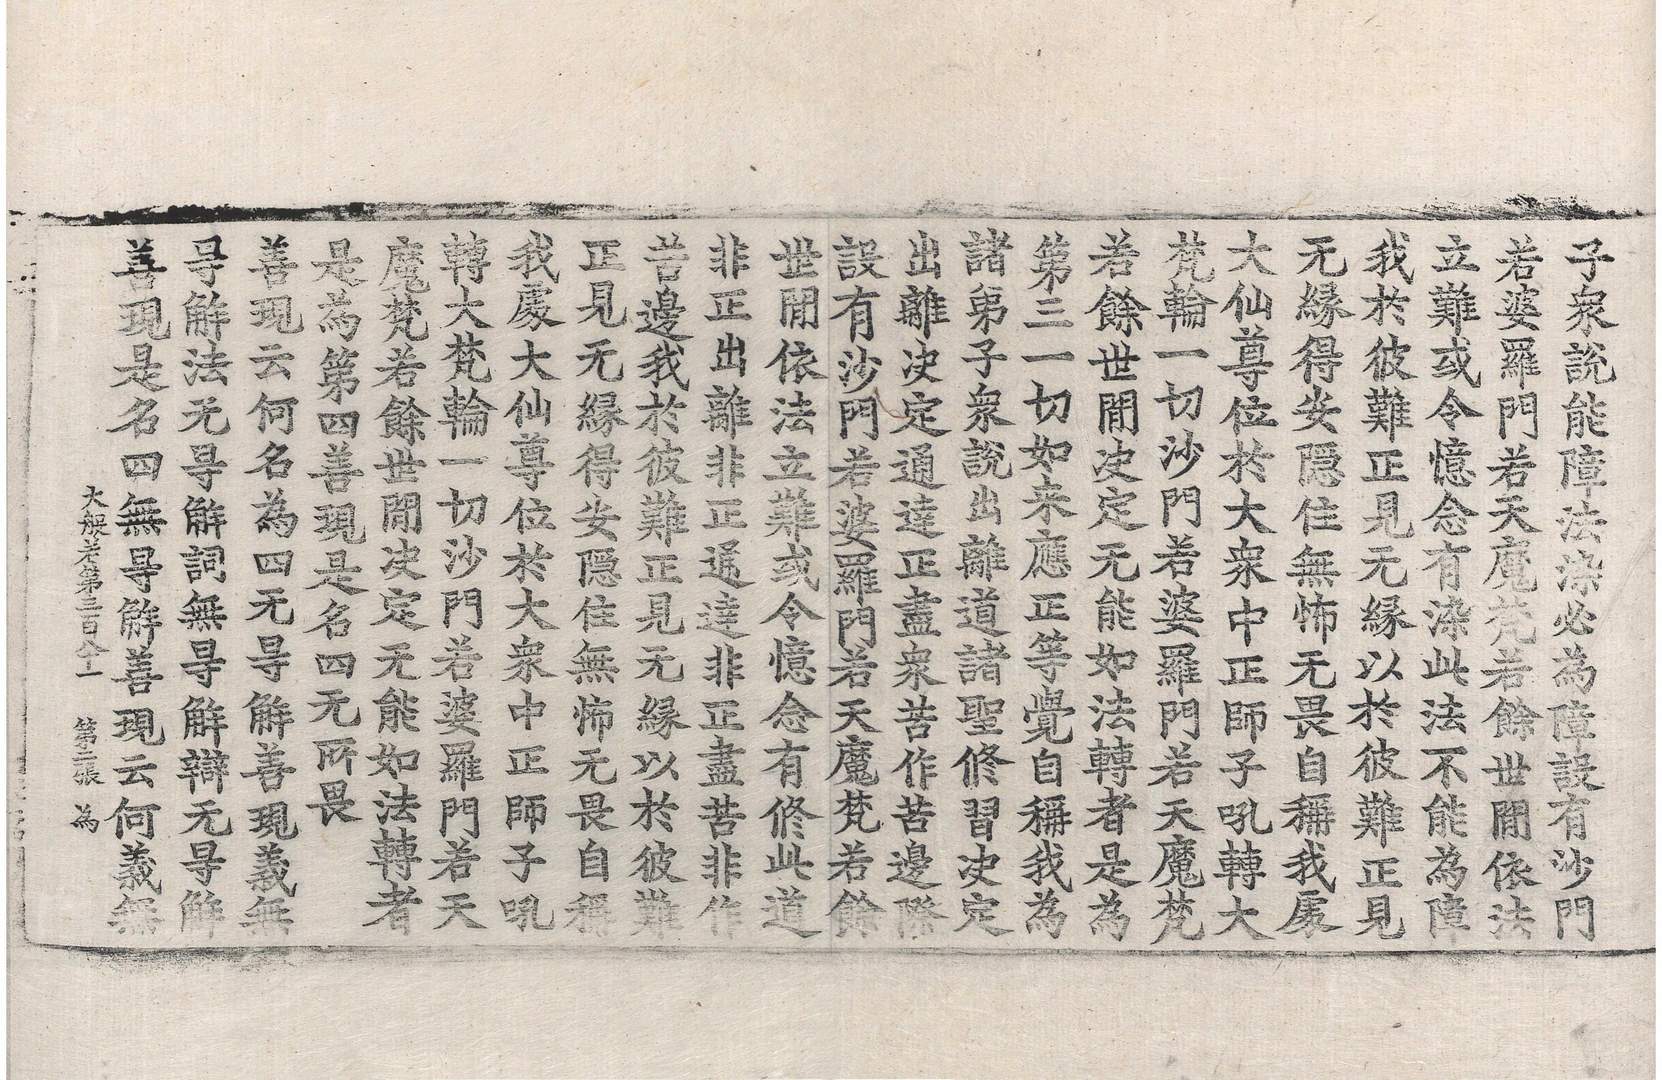 子衆說能障法染必為障設有沙門
若婆羅門若天魔梵若餘世間依法
立難或令憶念有染此法不能為障
我於彼難正見无緣以於彼難正見
无緣得安隱住無怖无畏自稱我處
大仙尊位於大衆中正師子吼轉大
梵輪一切沙門若婆羅門若天魔梵
若餘世間决定无能如法轉者是為
第三一切如来應正等覺自稱我為
諸弟子衆說出離道諸聖修習决定
出離决定通達正盡衆苦作苦邊際
設有沙門若婆羅門若天魔梵若餘
世間依法立難或令憶念有修此道
非正出離非正通達非正盡苦非作
苦邊我於彼難正見无緣以於彼難
正見无緣得安隱住無怖无畏自稱
我處大仙尊位於大衆中正師子吼
轉大梵輪一切沙門若婆羅門若天
魔梵若餘世間决定无能如法轉者
是為第四善現是名四无所畏
善現云何名為四无㝵解善現義無
㝵解法无㝵解詞無㝵解辯无㝵解
善現是名四無㝵解善現云何義無
大般若第三百八十一 第二張 為